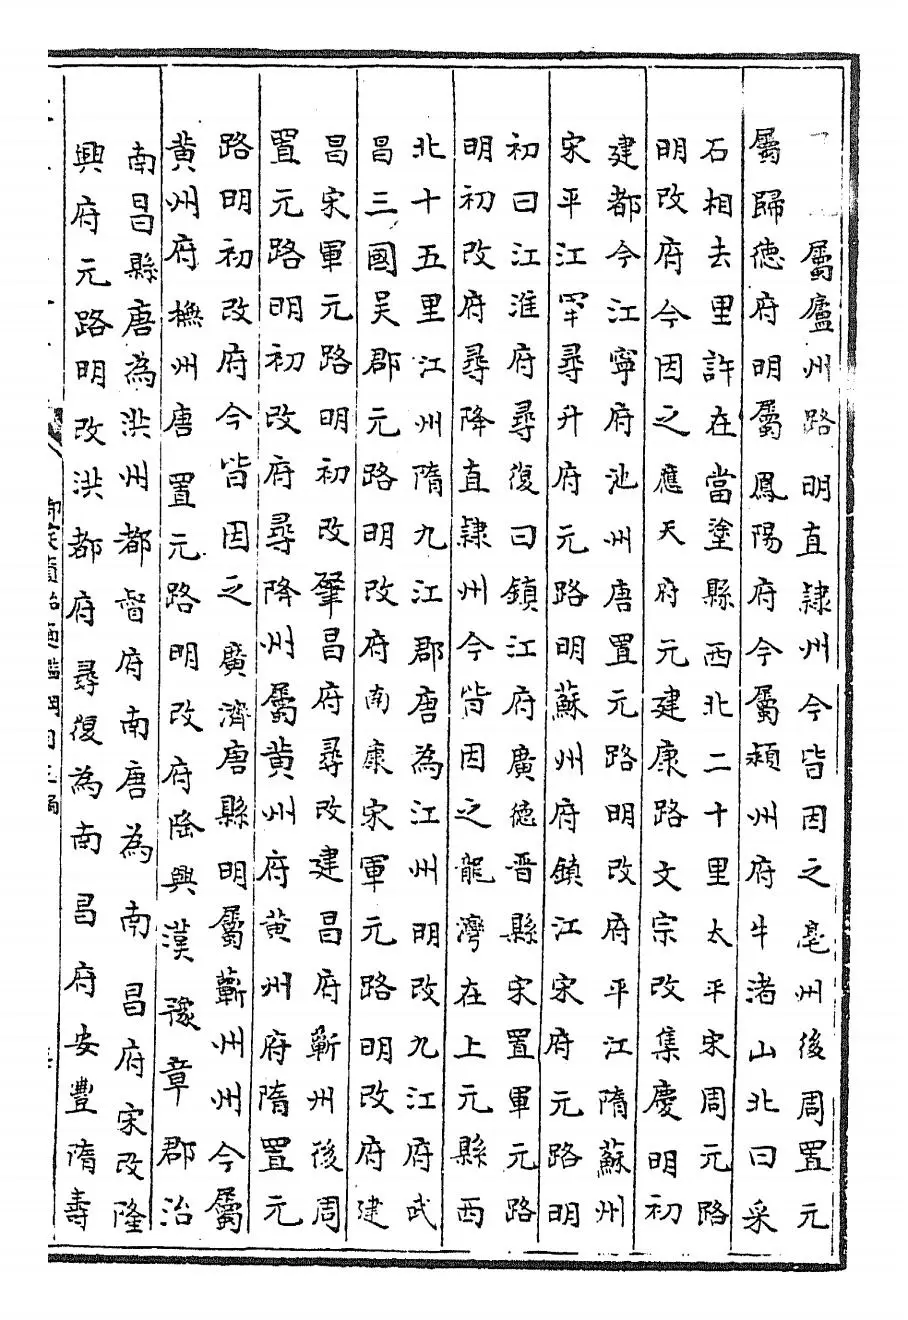 屬廬州路明直隸州今皆因之亳州後周置元
屬歸德府明屬鳳陽府今屬潁州府牛渚山北曰采
石相去里許在當塗縣西北二十里太平宋周元路
明改府今因之應天府元建康路文宗改集慶明初
建都今江寧府池州唐置元路明改府平江隋蘇州
宋平江軍尋升府元路明蘇州府鎮江宋府元路明
初曰江淮府尋復曰鎮江府廣德晉縣宋置軍元路
明初改府尋降直隸州今皆因之龍灣在上元縣西
北十五里江州隋九江郡唐為江州明改九江府武
昌三國吳郡元路明改府南康宋軍元路明改府建
昌宋軍元路明初改肇昌府尋改建昌府蘄州後周
置元路明初改府尋降州屬黃州府黃州府隋置元
路明初改府今皆因之廣濟唐縣明屬蘄州州今屬
黃州府撫州唐置元路明改府隆興漢豫章郡治
南昌縣唐為洪州都督府南唐為南昌府宋改隆
興府元路明改洪都府尋復為南昌府安豐隋壽